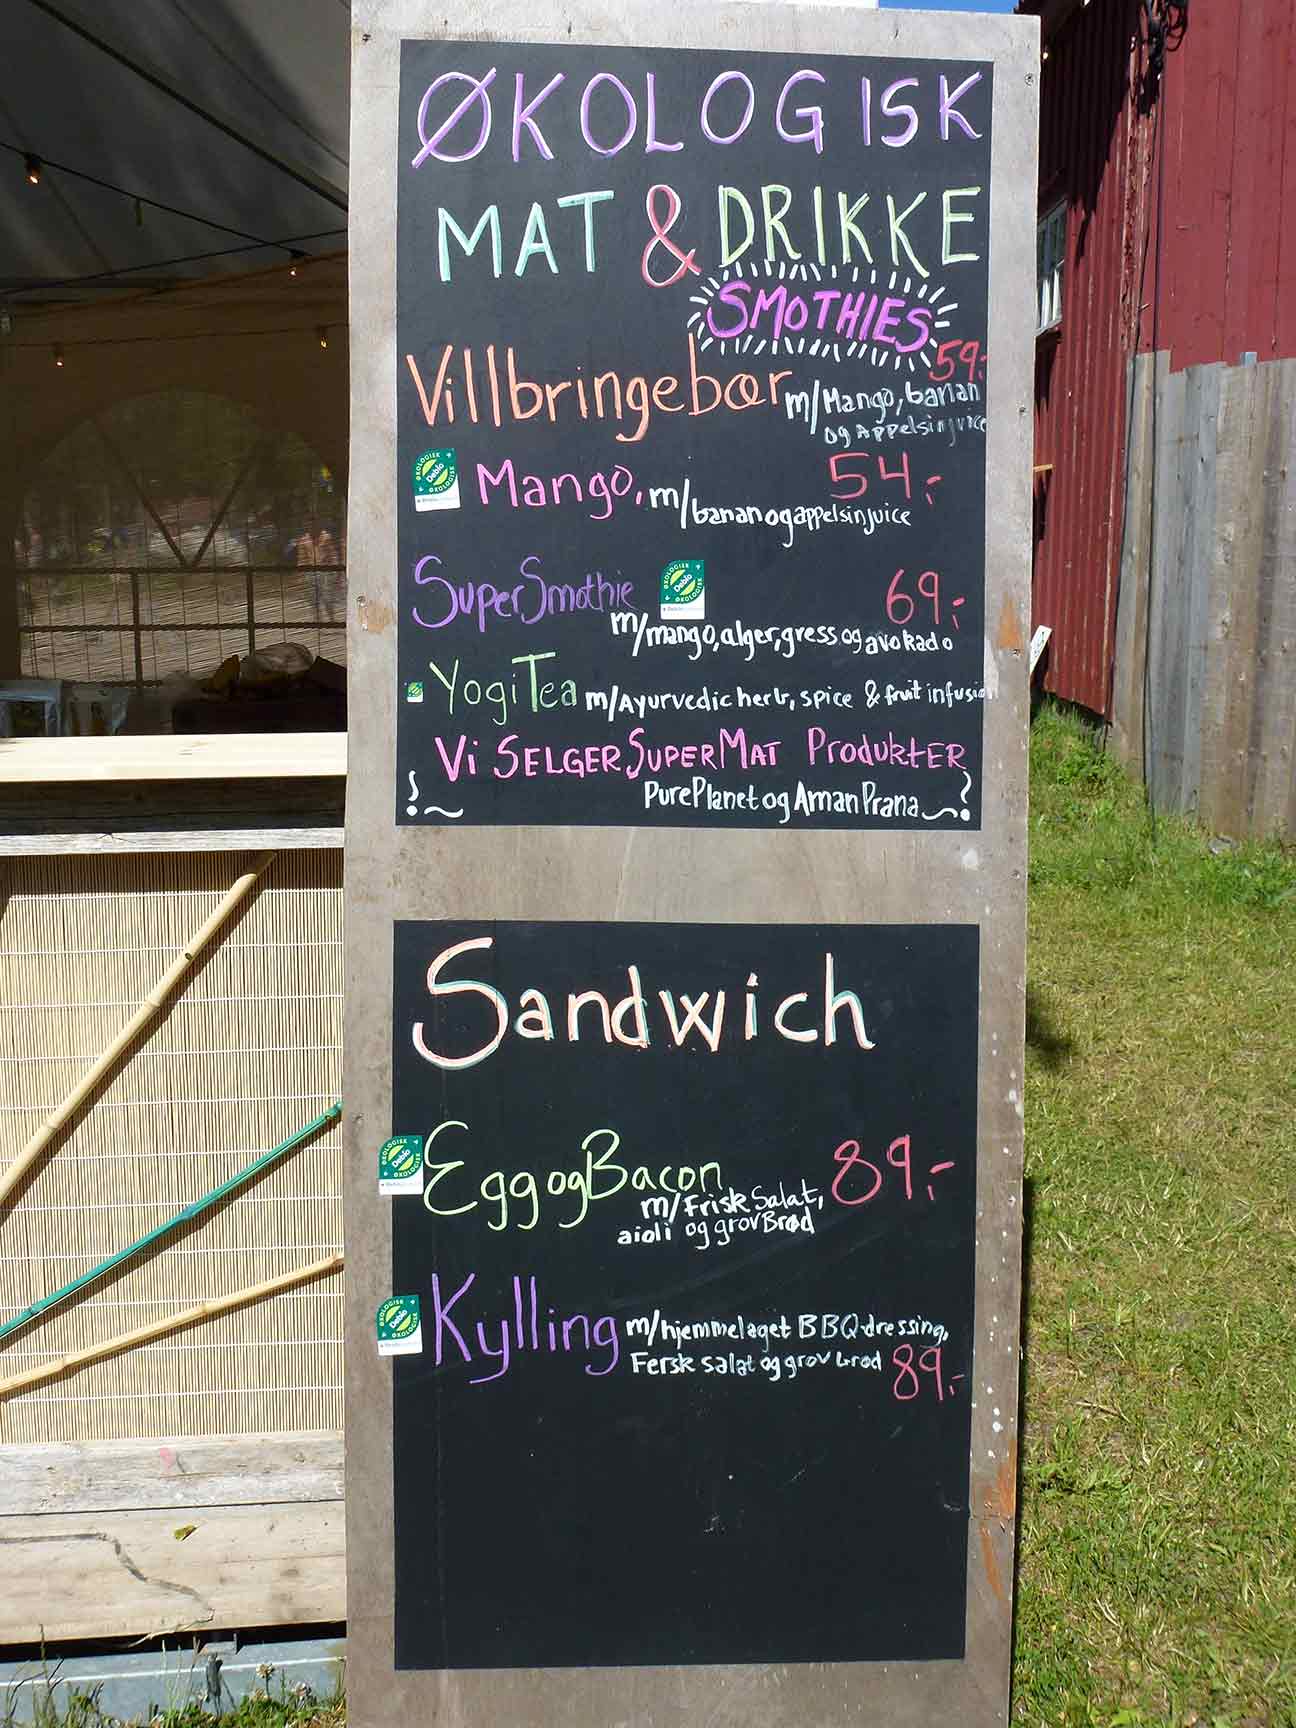 ØKOLOGISK
MAT & DRIKKE
SMOTHIES
Villbringebær m/Mango, banan 59,-
og Appelsinjuice
ØKOLOGISK
Debio
ØKOLOGISK
Mango, m/banan og appelsinjuice 54,-
SuperSmothie 69,-
ØKOLOGISK
Debio
ØKOLOGISK
m/mango, alger, gress og avokado
Yogi Tea m/Ayurvedic herb, spice & fruit infusion
Vi SELGER SUPERMAT PRODUKTER
PurePlanet og Aman Prana
Sandwich
ØKOLOGISK
Debio
ØKOLOGISK
Egg og Bacon 89,-
m/Frisk Salat,
aioli og grov Brød
ØKOLOGISK
Debio
ØKOLOGISK
Kylling m/hjemmelaget BBQ-dressing,
Fersk salat og grov brød 89,-